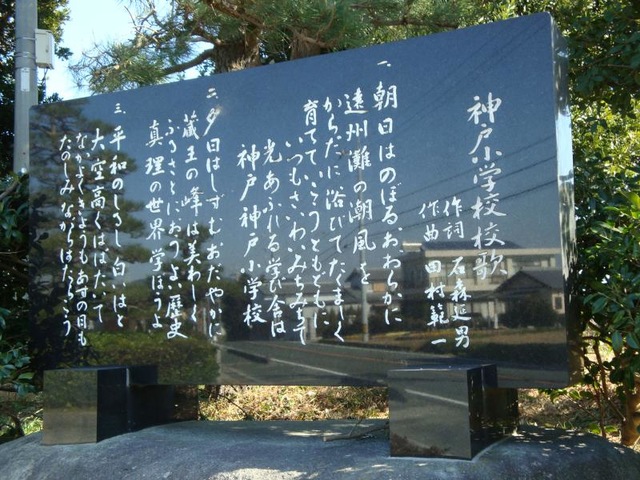 神戸小学校校歌
作詞 石森延男
作曲 田村範一
一、朝日はのぼる、おおらかに
遠州灘の潮風を
からだに浴びてたくましく
育てていこうともどもに
いつもさいわいみちみちて
光あふれる学び舎は
神戸神戸小学校
二、夕日はしずむおだやかに
蔵王の峰は美わしく
ふるさとにおうよい歴史
真理の世界学ぼうよ
三、平和のしるし白いはと
大空高くはばたいて
なかよくきょうもあすの日も
たのしみながらはたらこう